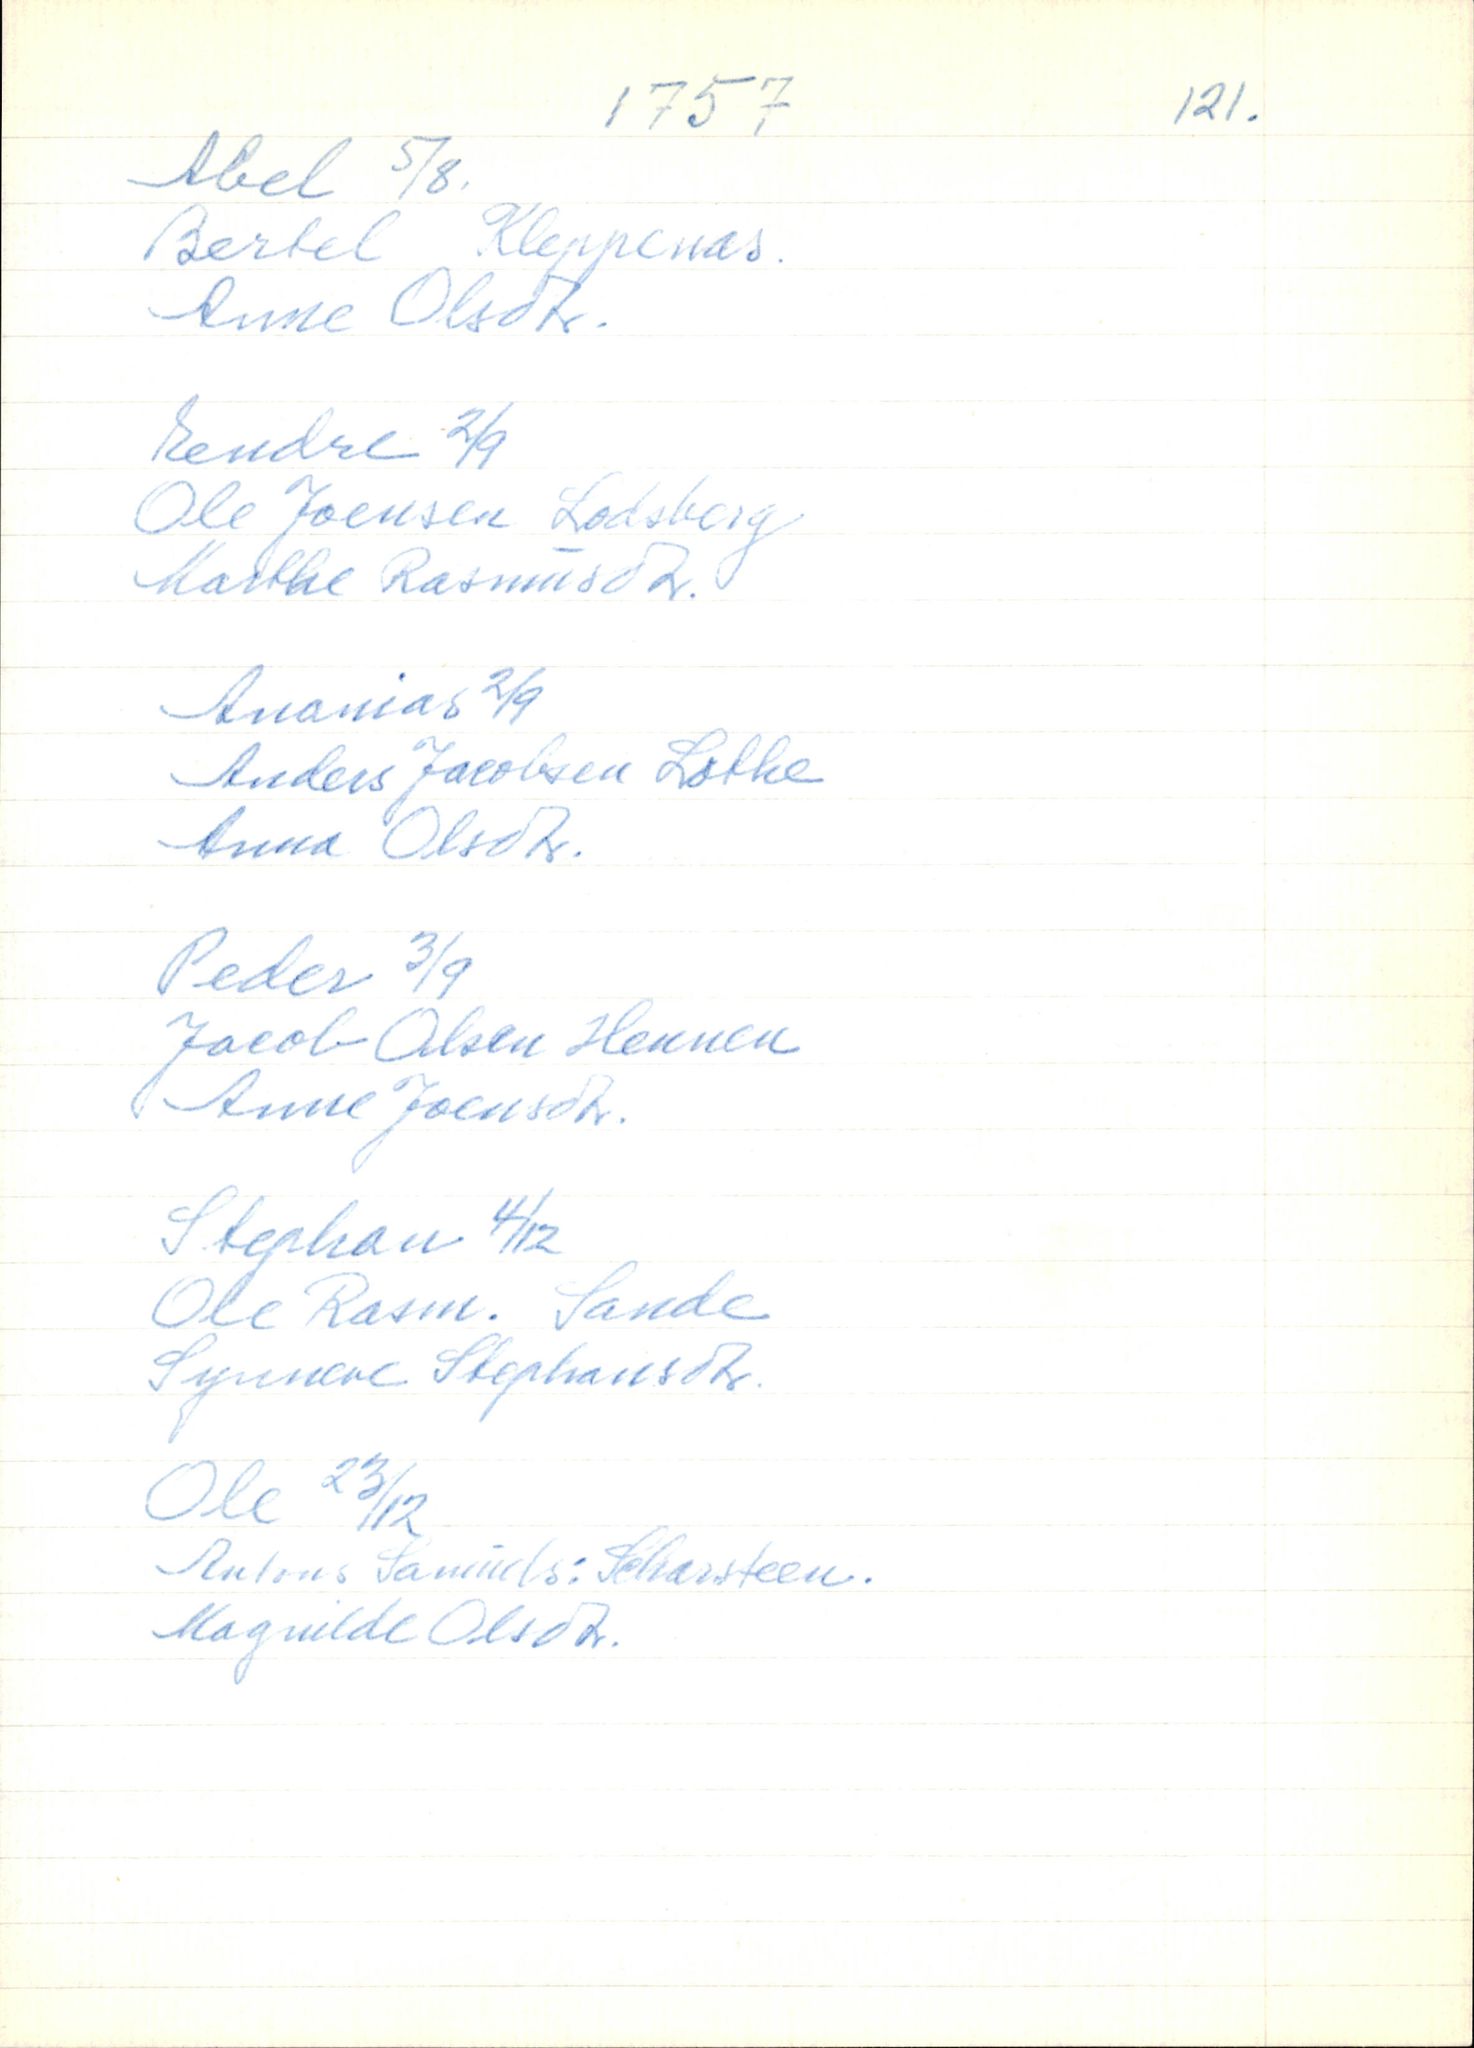 1757 121.
Abel 5/8.
Bertel Kleppenas.
Anne Olsdtr.
Eendre 2/9
Ole Joensen Lødsberg
Marthe Rasmusdtr.
Ananias 2/9
Anders Jacobsen Lothe
Anna Olsdtr.
Peder 3/9
Jacob Olsen Hennen
Anne Joensdtr.
Stephan 4/12
Ole Rasm. Sande
Synneve Stephansdtr.
Ole 23/12
Antons Samuels: Scharsteen.
Magnilde Olsdtr.